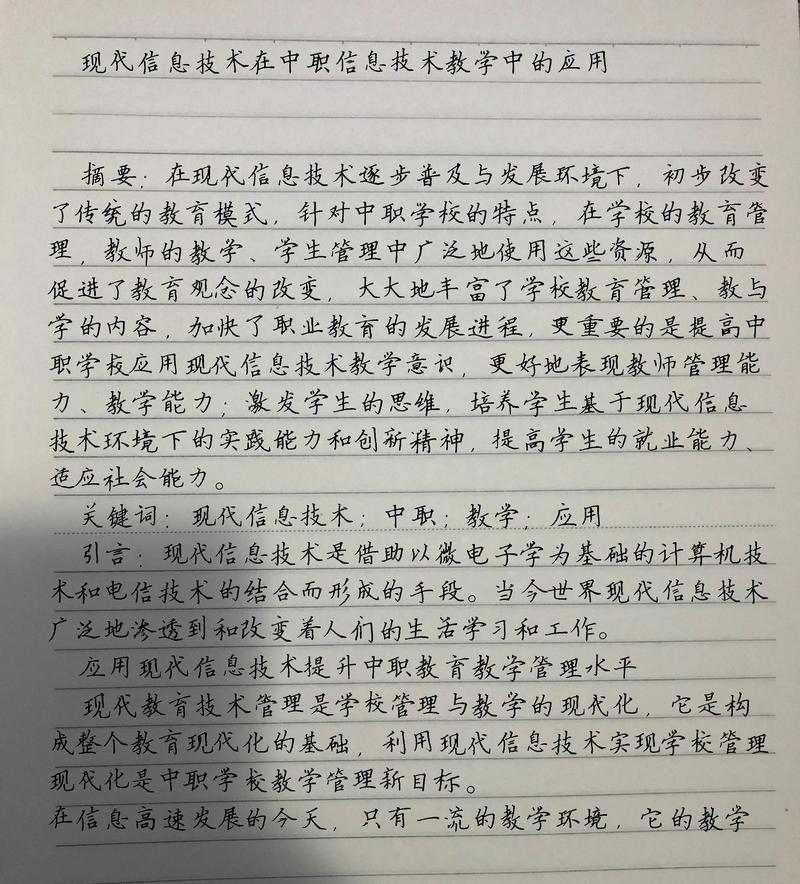 现代信息技术在中职信息技术教学中的应用
摘要：在现代信息技术逐步普及与发展环境下，初步改变
了传统的教育模式，针对中职学校的特点，在学校的教育管
理，教师的教学、学生管理中广泛地使用这些资源，从而
促进了教育观念的改变，大大地丰富了学校教育管理、教与
学的内容，加快了职业教育的发展进程，更重要的是提高中
职学校应用现代信息技术教学意识，更好地表现教师管理能
力、教学能力；激发学生的思维，培养学生基于现代信息
技术环境下的实践能力和创新精神，提高学生的就业能力、
适应社会能力。
关键词：现代信息技术；中职；教学；应用
引言：现代信息技术是借助以微电子学为基础的计算机技
术和电信技术的结合而形成的手段。当今世界现代信息技术
广泛地渗透到和改变着人们的生活学习和工作。
应用现代信息技术提升中职教育教学管理水平
现代教育技术管理是学校管理与教学的现代化，它是构
成整个教育现代化的基础，利用现代信息技术实现学校管理
现代化是中职学校教学管理新目标。
在信息高速发展的今天，只有一流的教学环境，它的教学